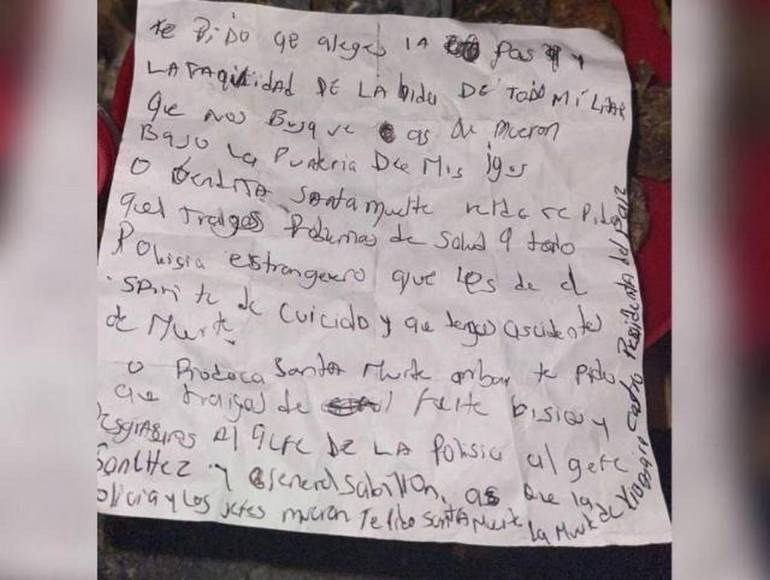 te PiDO qe aleges lA pas y
LA TAquilidad DE LA bida DE TODO Mi
que nos Busque as de mueron
Bajo La Punteria Dee Mis igos
O Bendita Santa muerte te Pido
quel traigas Poblemas de Salud a todo
Polisia estrangero que les de el
spiri te de cuicido y que tenges accidentes
de Muerte
O Santa Muerte te Pido
que traigas de Feite bision y
Al gefe DE LA Polisia al gefe
SanCHez y General sabillon, as que la
olicia y Los jefes mueron Te Pido Santa Muerte La Muerte de
Xiomara Castro Presidenta del Pais